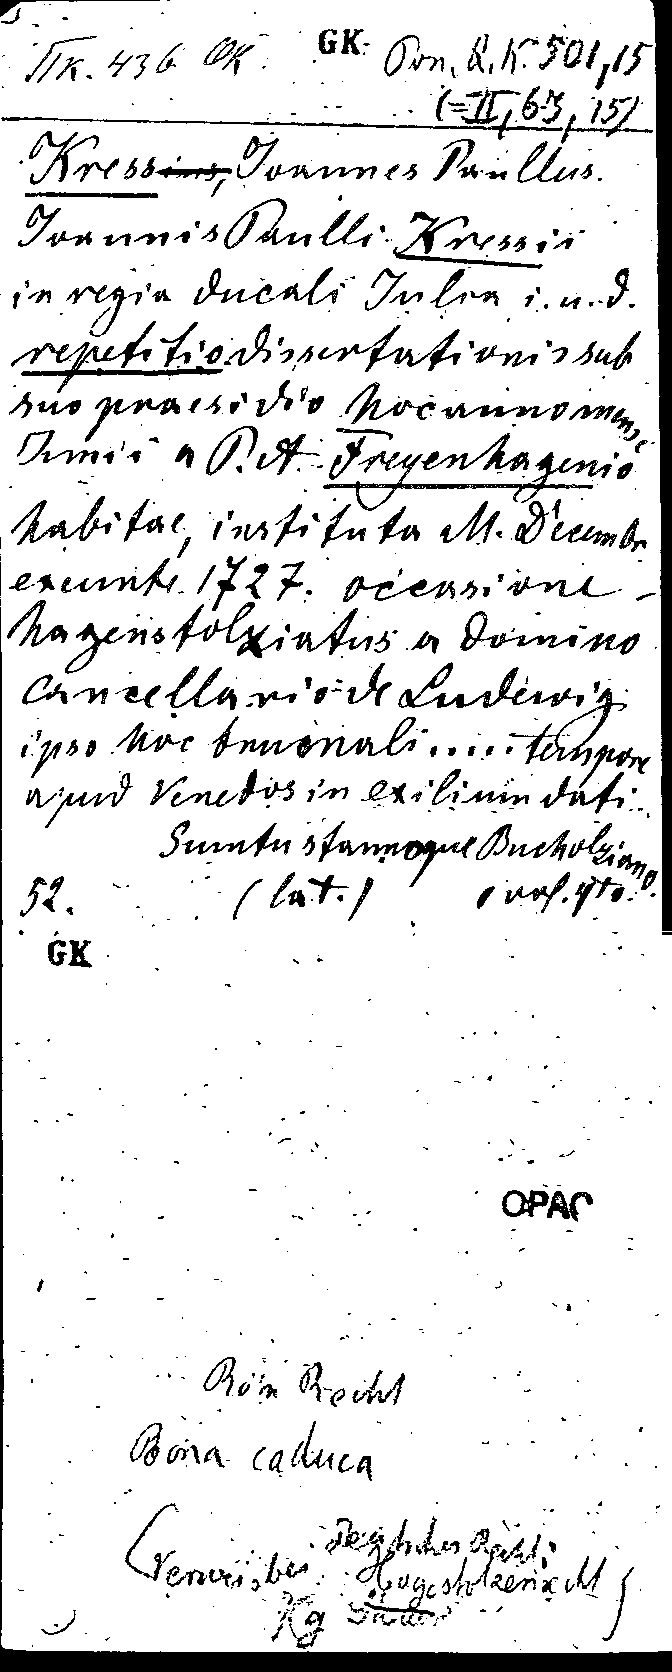 Пк. 436 OK GK Pon. Q. K. 501, 15
(= II, 63, 15)
Kressius, Joannes Paullus.
Joannis Paulli Kressii
in regia ducali Julia i. u. d.
repetitio dissertationis sub
suo praesidio hoc anno mense
Junii a P. A. Freyenhagenio
habitae, instituta M. Decembr.
exeunte 1727. occasione
hagenstolziatus a domino
cancellario de Ludewig
ipso hoc brumali ..... tempore
apud Venedos in exilium dati..
Sumtu stannoque Bucholziano.
52. (lat.) 1 vol. 4to.
GK
OPAC
Röm Recht
Bona caduca
(Verweis bei Deutsches Recht:
Hagestolzenrecht)
Kg